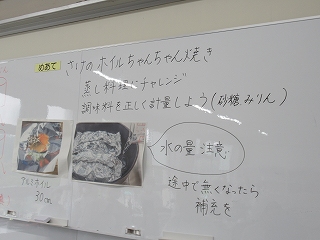 めあて さけのホイルちゃんちゃん焼き
蒸し料理にチャレンジ
調味料を正しく計量しよう(砂糖みりん)
アルミホイル
30cm
水の量 注意
途中で無くなったら
補充を